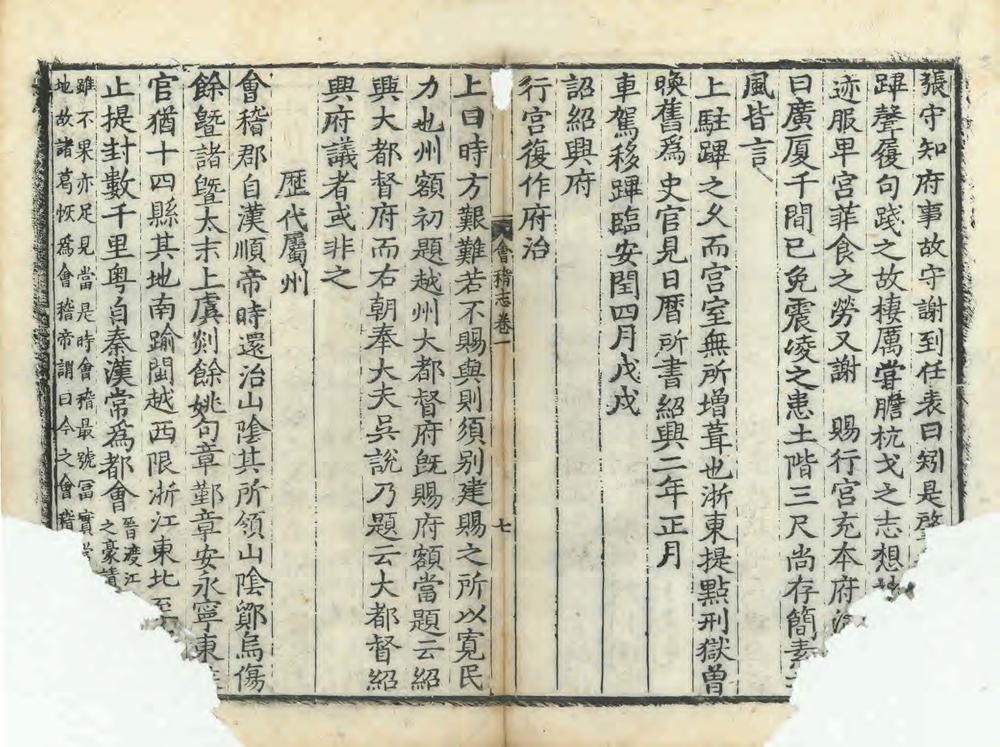 張守知府事故守謝到任表曰矧是
蹕聲履句踐之故棲厲甞膽枕戈之志想
迹服甲宫菲食之勞又謝　賜行宫充本府
曰廣厦千間已免震凌之患土階三尺尚存簡素
風皆言
上駐蹕之久而宫室無所增葺也浙東提點刑獄曾
㬇舊爲史官見日曆所書紹興二年正月
車駕移蹕臨安閏四月戊戌
詔紹興府
行宫復作府治
會稽志卷一
七
上曰時方艱難若不賜與則須别建賜之所以寬民
力也州額初題越州大都督府旣賜府額當題云紹
興大都督府而右朝奉大夫吳說乃題云大都督紹
興府議者或非之
歴代屬州
會稽郡自漢順帝時還治山陰其所領山陰鄮烏傷
餘曁諸曁太末上虞剡餘姚句章鄞章安永寧東
官猶十四縣其地南踰閩越西限浙江東北至
止提封數千里粤自秦漢常爲都會晉渡江
之豪請
雖不果亦足見當是時會稽最號冨實
地故諸葛恢爲會稽帝謂曰今之會稽